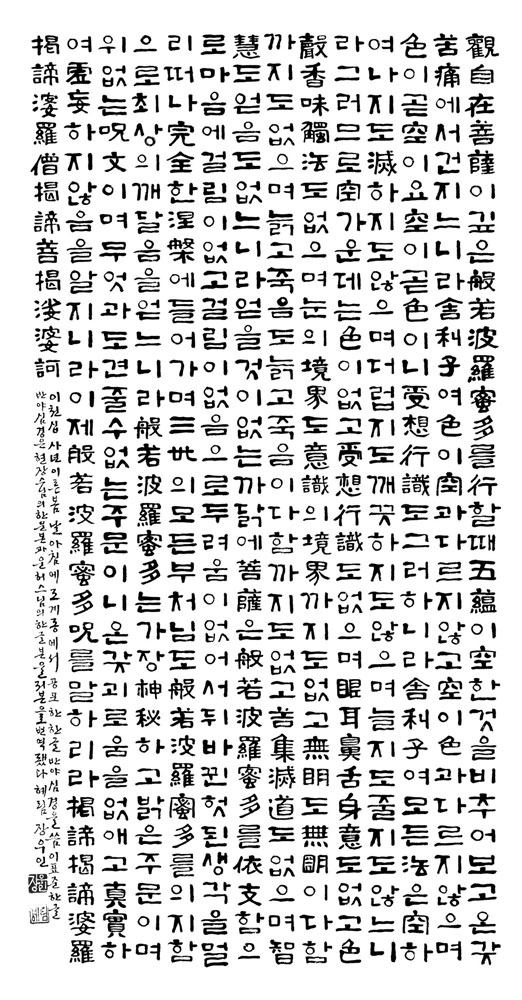 觀自在善薩이깊은般若波羅蜜多를行할때五蘊이空한것을비추어보고온갖
苦痛에서건지느니라舍利子여色이空과다르지않고空이色과다르지않으며
色이곧空이요空이곧色이니受想行識도그러하니라舍利子여모든法은空하
여나지도滅하지도않으며더럽지도깨끗하지도않으며늘지도줄지도않느니
라그러므로空가운데는色이없고受想行識도없으며眼耳鼻舌身意도없고色
聲香味觸法도없으며눈의境界도意識의境界까지도없고無明도無明이다함
까지도없으며늙고죽음도늙고죽음이다함까지도없고苦集滅道도없으며智
慧도얻음도없느니라얻을것이없는까닭에菩薩은般若波羅蜜多를依支함으
로마음에걸림이없고걸림이없음으로두려움이없어서뒤바뀐헛된생각을멀
리떠나完全한涅槃에들어가며三世의모든부처님도般若波羅蜜多를의지함
으로최상의깨달음을얻느니라般若波羅蜜多는가장神秘하고밝은주문이며
위없는呪文이며무엇과도견줄수없는주문이니온갖괴로움을없애고眞實하
여虛妄하지않음을알지니라이제般若波羅蜜多呪를말하리라揭諦揭諦婆羅
揭諦婆羅僧揭諦善揭娑婆訶
이천십사년이른봄날아침에조계종에서공포한한글반야심경을씀이표준한글
반야심경은현장스님의한문본과운허스님의한글본을저본으로번역했다혜림장우인